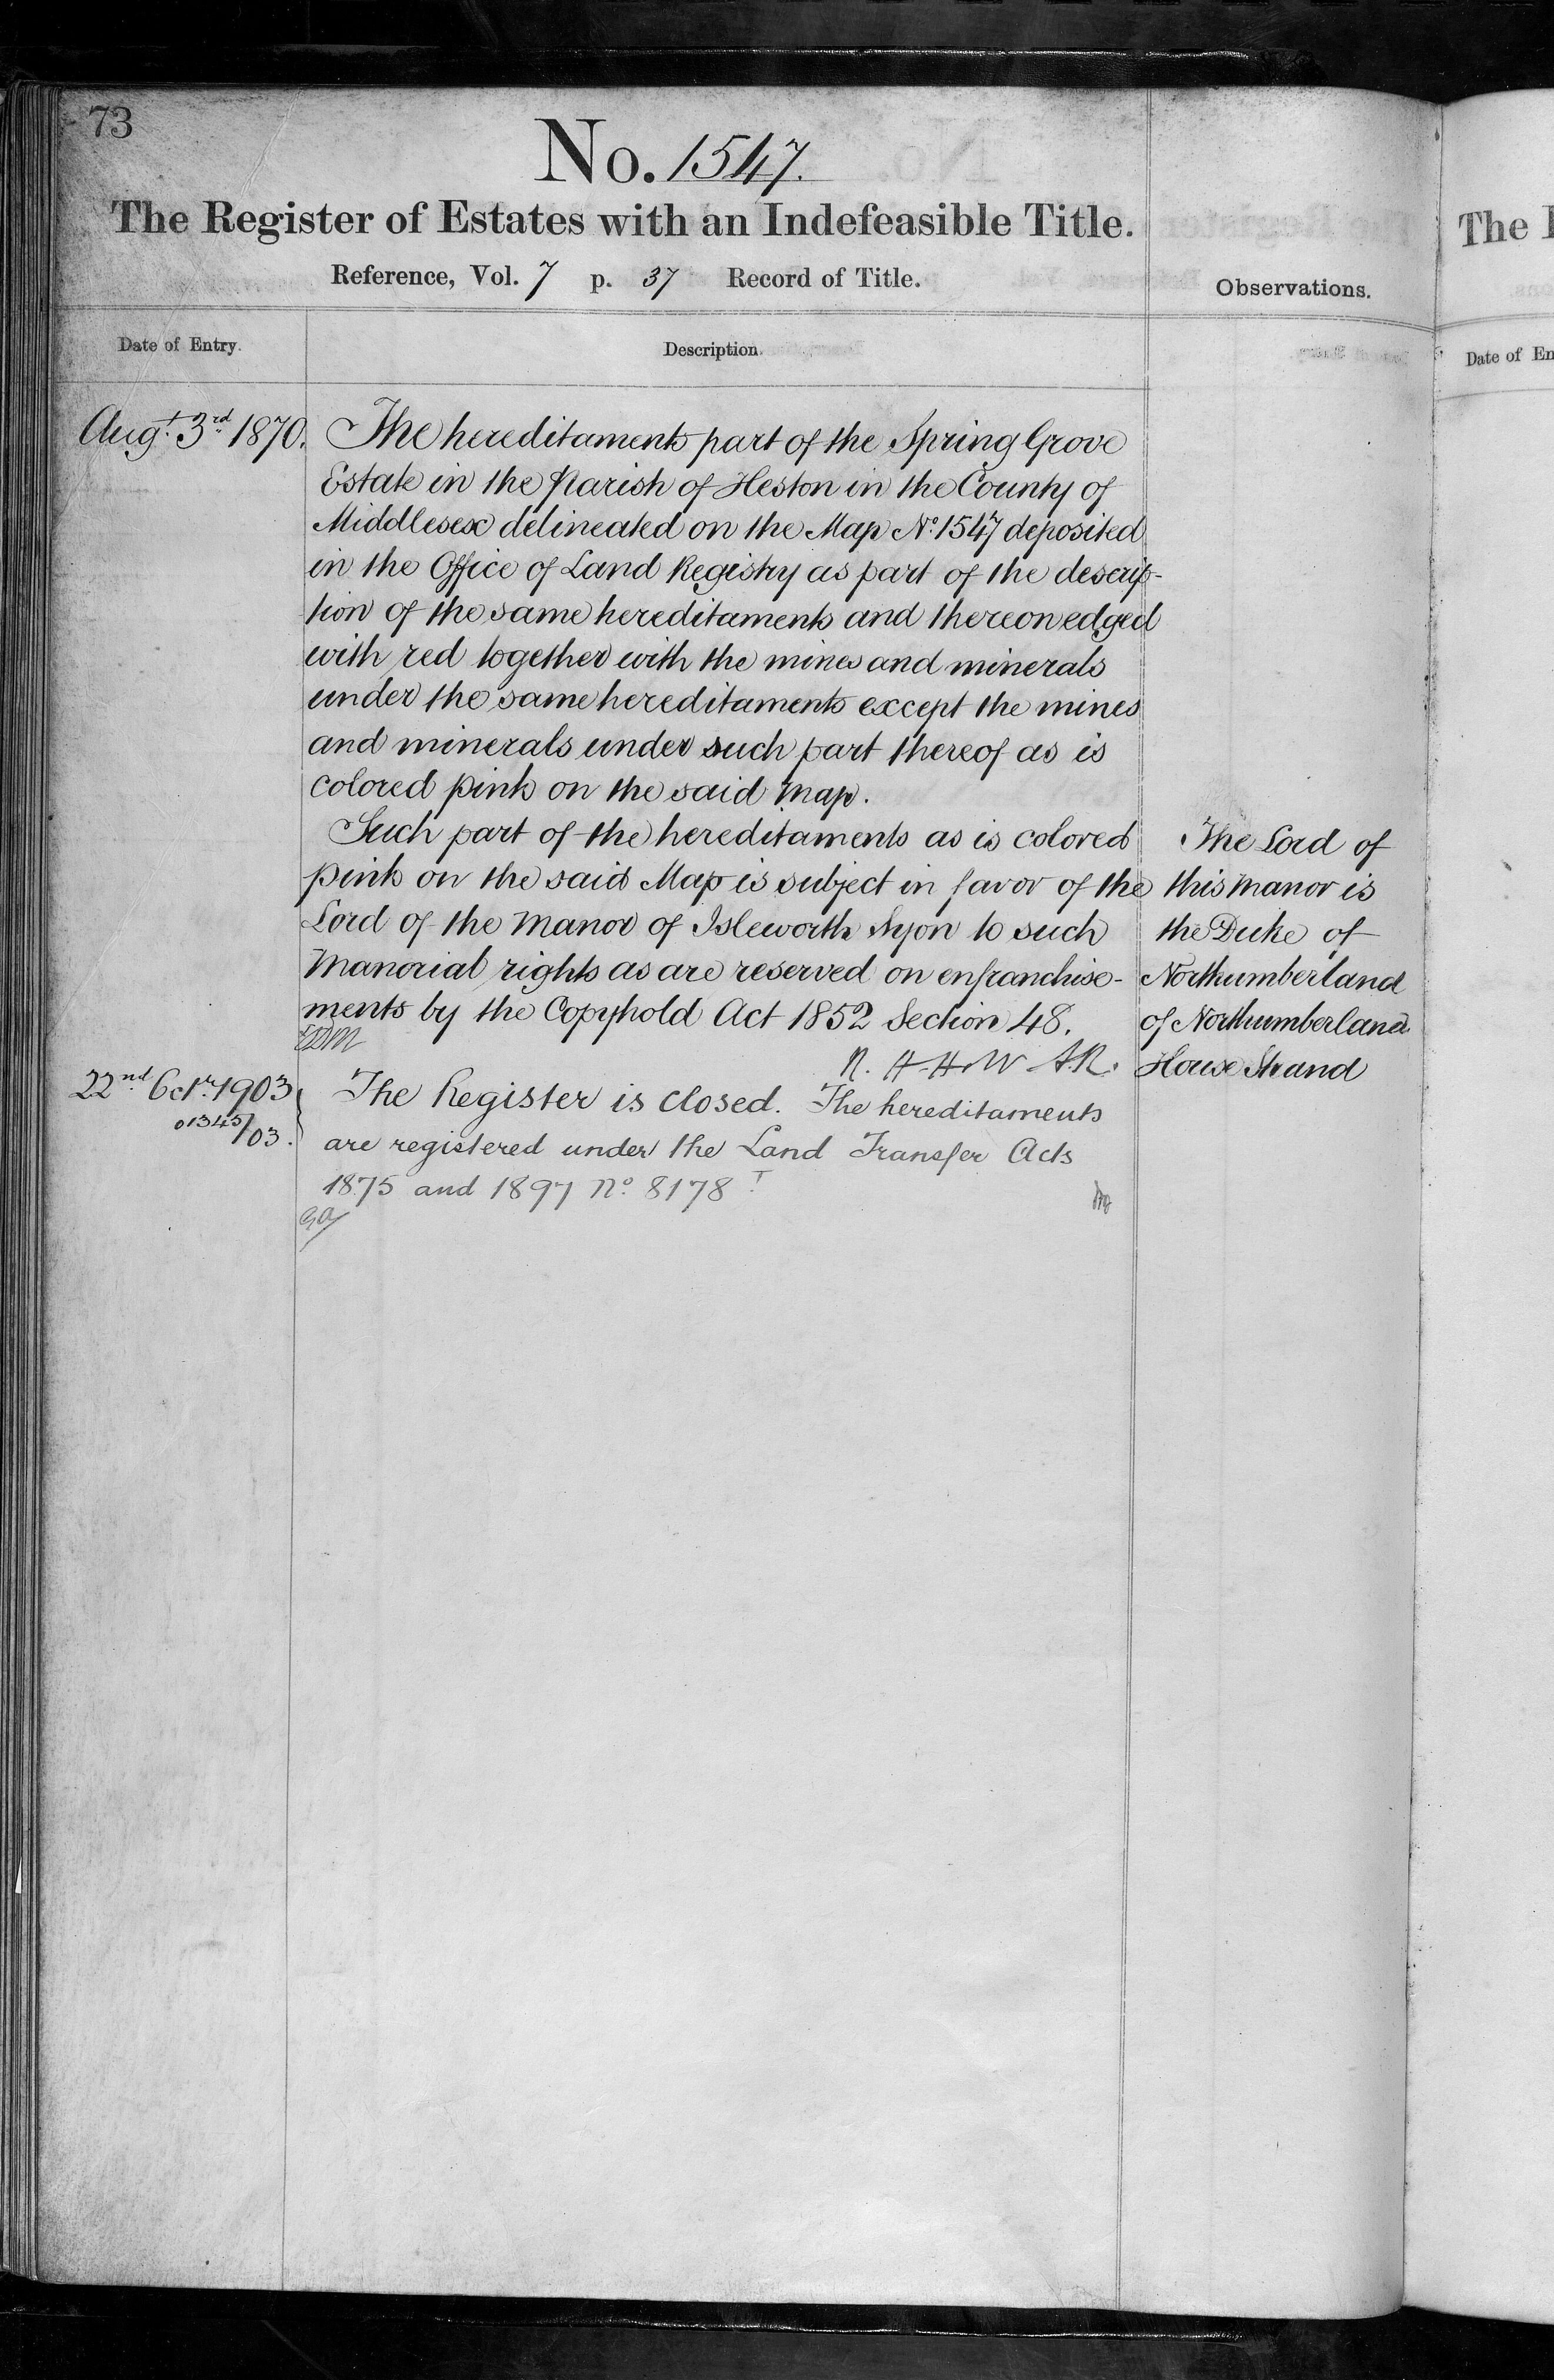 73
No. 1547.
The Register of Estates with an Indefeasible Title.
Reference, Vol. 7 p. 37 Record of Title.
Observations.
Date of Entry.
Description.
Augt. 3rd 1870.
The hereditaments part of the Spring Grove
Estate in the Parish of Heston in the County of
Middlesex delineated on the Map No. 1547 deposited
in the Office of Land Registry as part of the descrip-
tion of the same hereditaments and thereon edged
with red together with the mines and minerals
under the same hereditaments except the mines
and minerals under such part thereof as is
colored pink on the said Map.
Such part of the hereditaments as is colored
pink on the said Map is subject in favor of the
Lord of the Manor of Isleworth Syon to such
Manorial rights as are reserved on enfranchise-
ments by the Copyhold Act 1852 Section 48.
R. H. H. W A.R.
The Lord of
this Manor is
the Duke of
Northumberland
of Northumberland
House Strand
22nd Octr. 1903
01345/03.
The Register is closed. The hereditaments
are registered under the Land Transfer Acts
1875 and 1897 No. 8178
The
Date of En